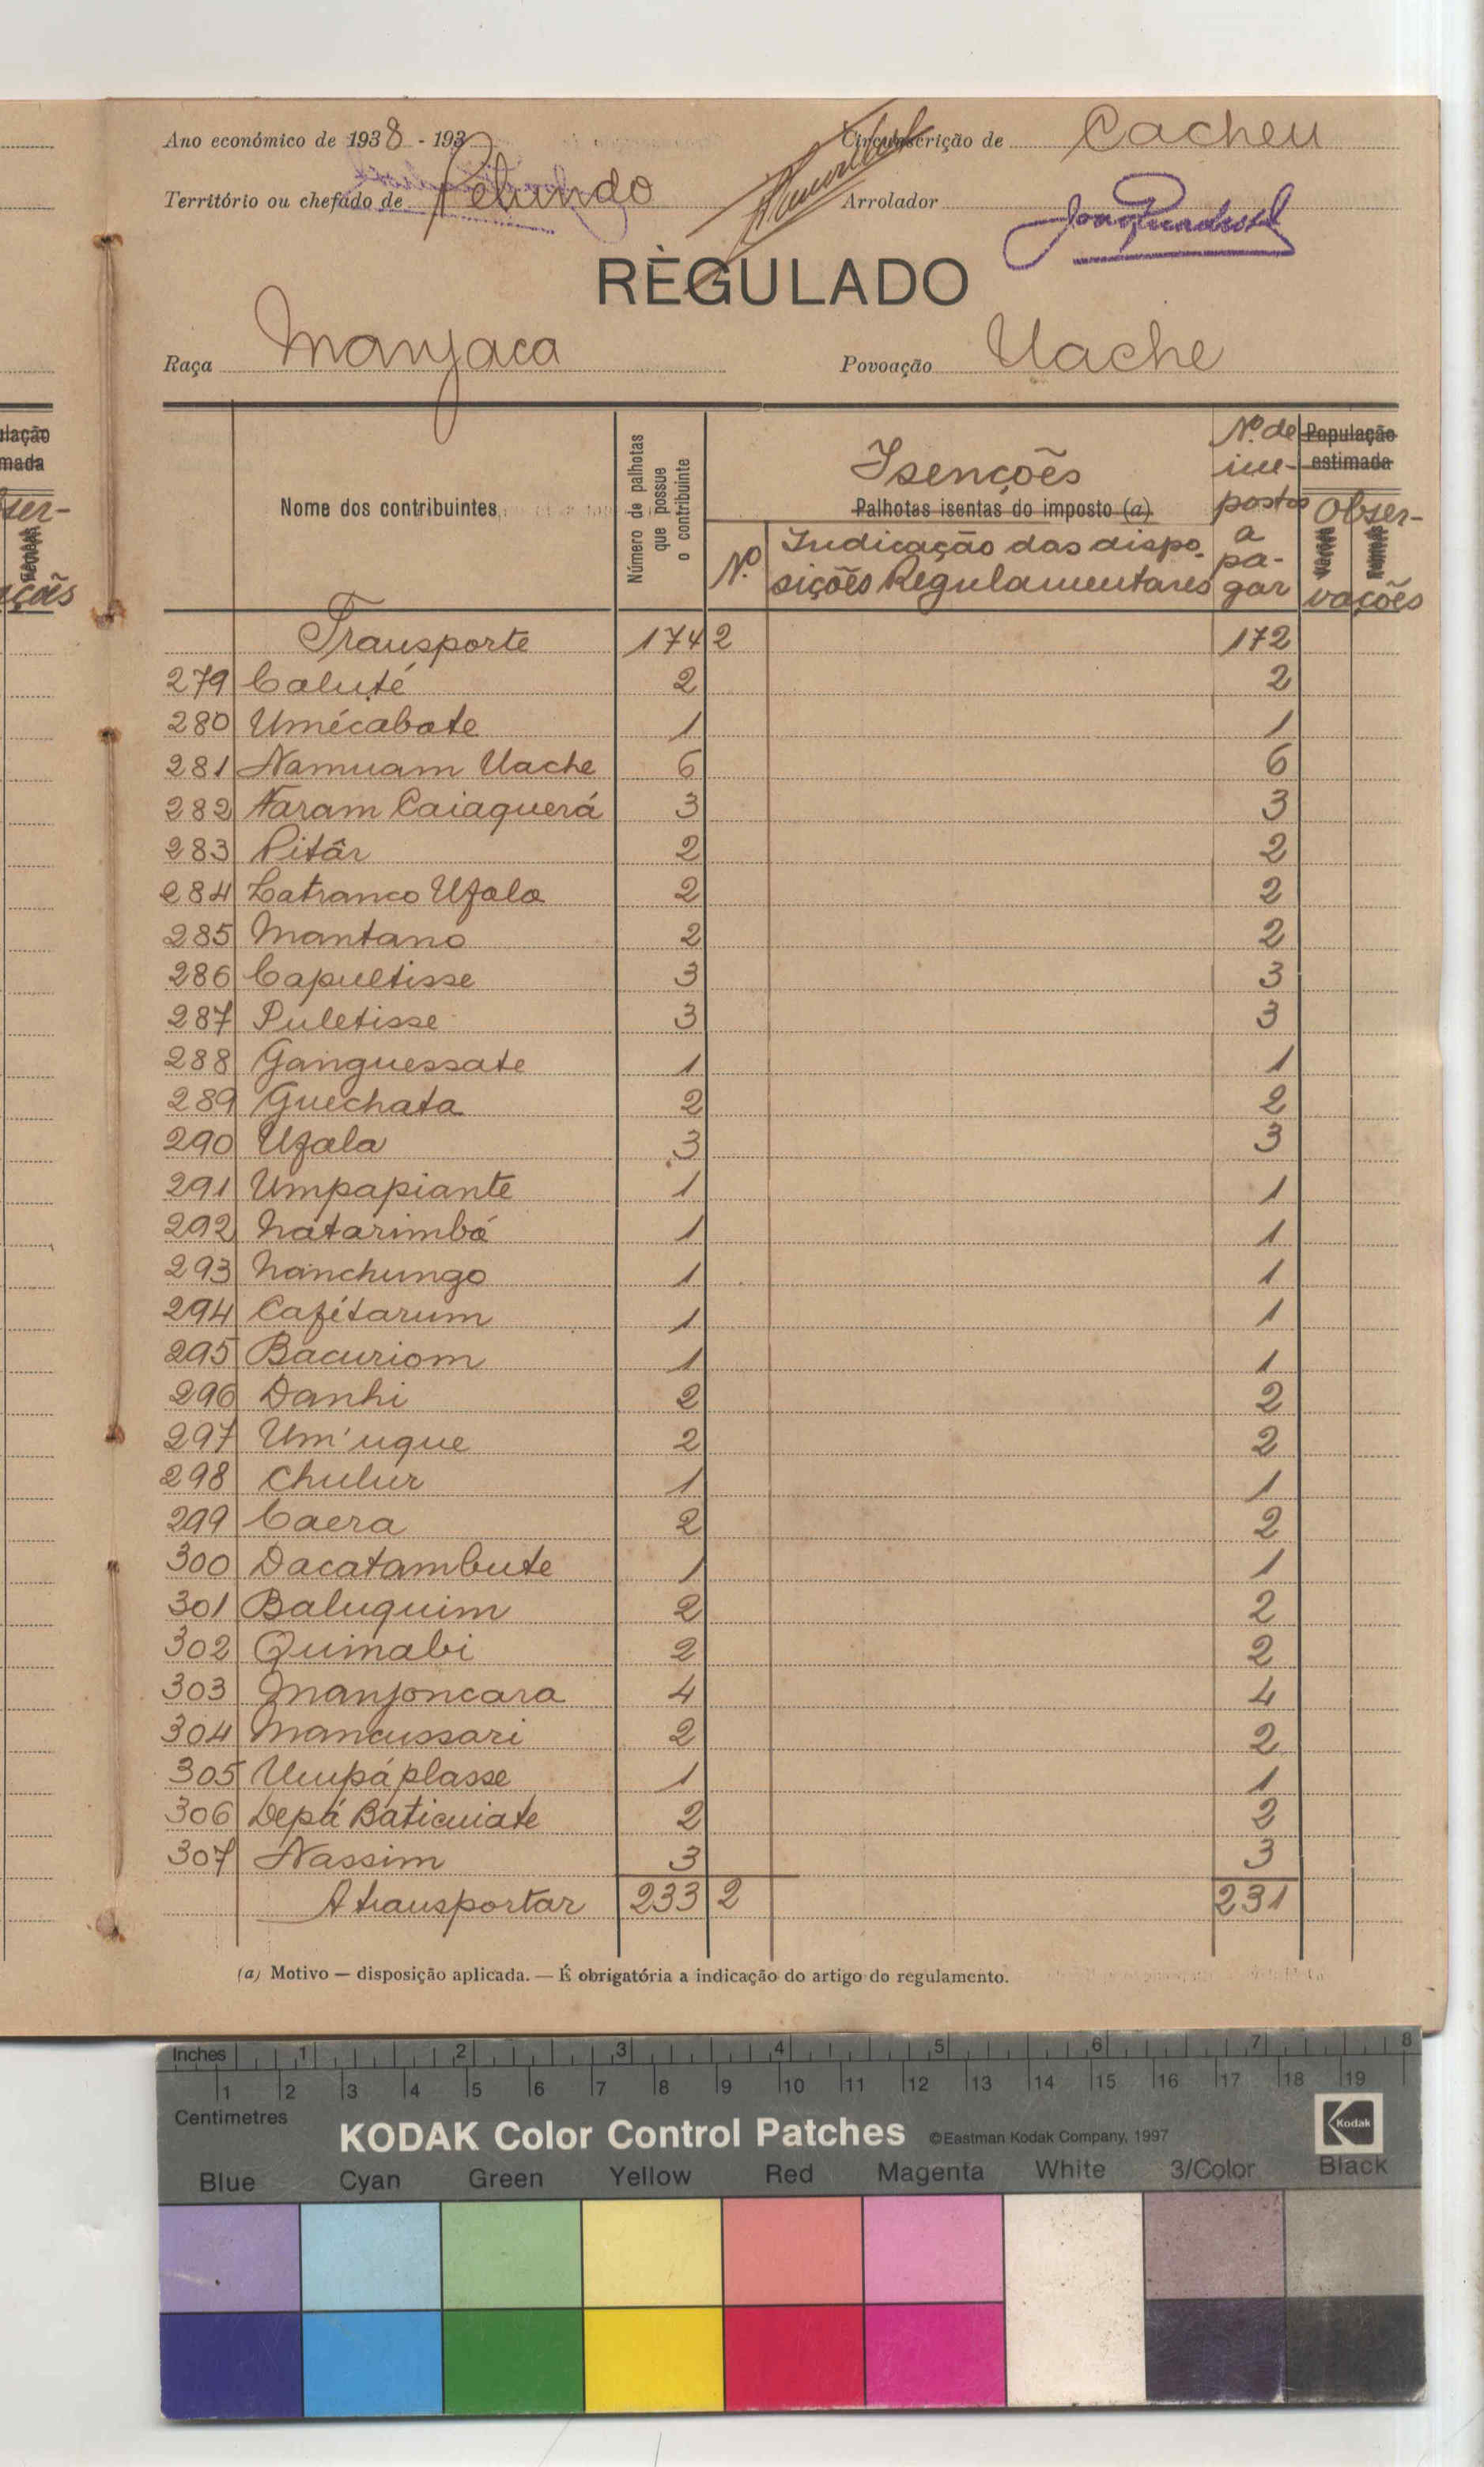 Ano económico de 1938 - 193
Circunscrição de Cacheu
Território ou chefado de Pelundo
Arrolador
RÈGULADO
Raça Manjaca
Povoação Uache
Nome dos contribuintes
Número de palhotas que possue o contribuinte
Isenções
Palhotas isentas do imposto (a)
Nº
Indicação das dispo-
sições Regulamentares
Nº de im-
postos a pa-
gar
População estimada
Obser-
vações
Transporte 174 2 172
279 Caluté 2 2
280 Umécabote 1 1
281 Namuam Uache 6 6
282 Faram Caiaquerá 3 3
283 Pitâr 2 2
284 Latranco Ufala 2 2
285 Mantano 2 2
286 Capultisse 3 3
287 Puletisse 3 3
288 Ganguessate 1 1
289 Guechata 2 2
290 Ufala 3 3
291 Umpapiante 1 1
292 Natarimbá 1 1
293 Nanchungo 1 1
294 Cafétarum 1 1
295 Bacuriom 1 1
296 Danhi 2 2
297 Um'uque 2 2
298 Chulur 1 1
299 Caera 2 2
300 Dacatambute 1 1
301 Baluquim 2 2
302 Quinabi 2 2
303 Manjoncara 4 4
304 Mancussari 2 2
305 Umpáplasse 1 1
306 Depá Baticuiate 2 2
307 Nassim 3 3
A transportar 233 2 231
(a) Motivo — disposição aplicada. — É obrigatória a indicação do artigo do regulamento.
Inches 1 2 3 4 5 6 7 8
1 2 3 4 5 6 7 8 9 10 11 12 13 14 15 16 17 18 19
Centimetres
KODAK Color Control Patches ©Eastman Kodak Company, 1997
Kodak
Blue Cyan Green Yellow Red Magenta White 3/Color Black